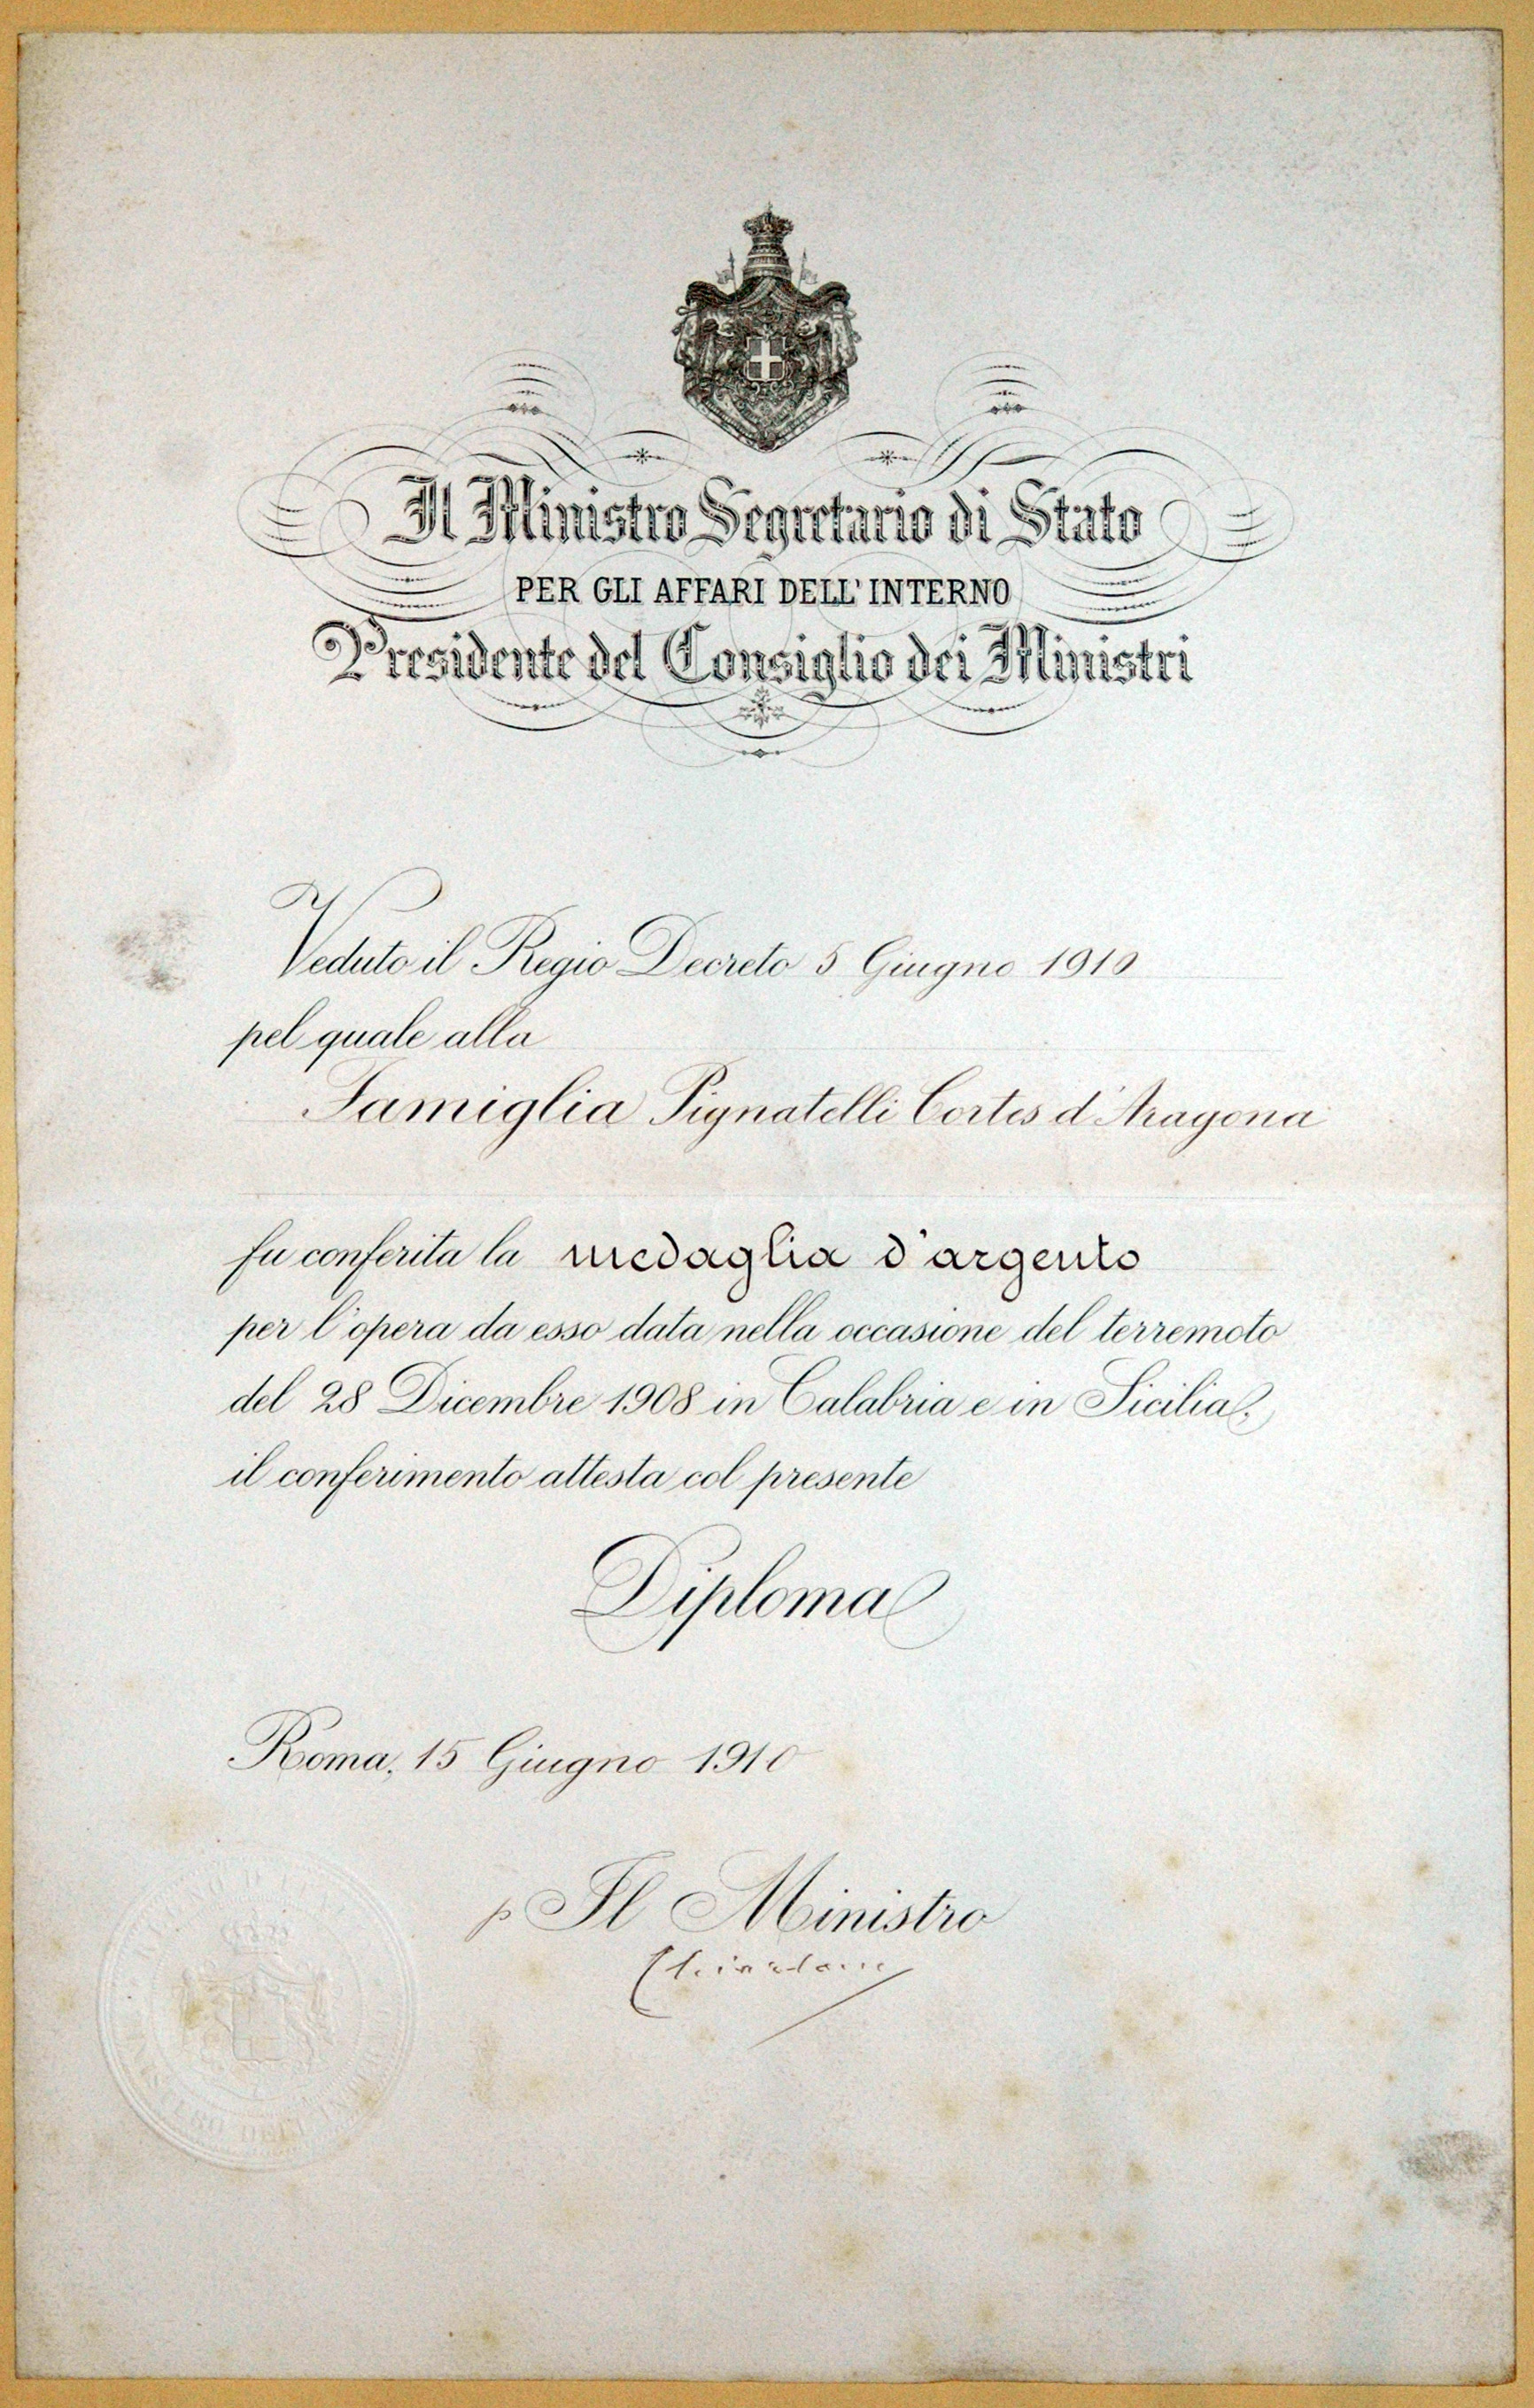 Il Ministro Segretario di Stato
PER GLI AFFARI DELL'INTERNO
Presidente del Consiglio dei Ministri
Veduto il Regio Decreto 5 Giugno 1910
pel quale alla
Famiglia Pignatelli Cortes d'Aragona
fu conferita la medaglia d'argento
per l'opera da esso data nella occasione del terremoto
del 28 Dicembre 1908 in Calabria e in Sicilia;
il conferimento attesta col presente
Diploma
Roma, 15 Giugno 1910
p Il Ministro